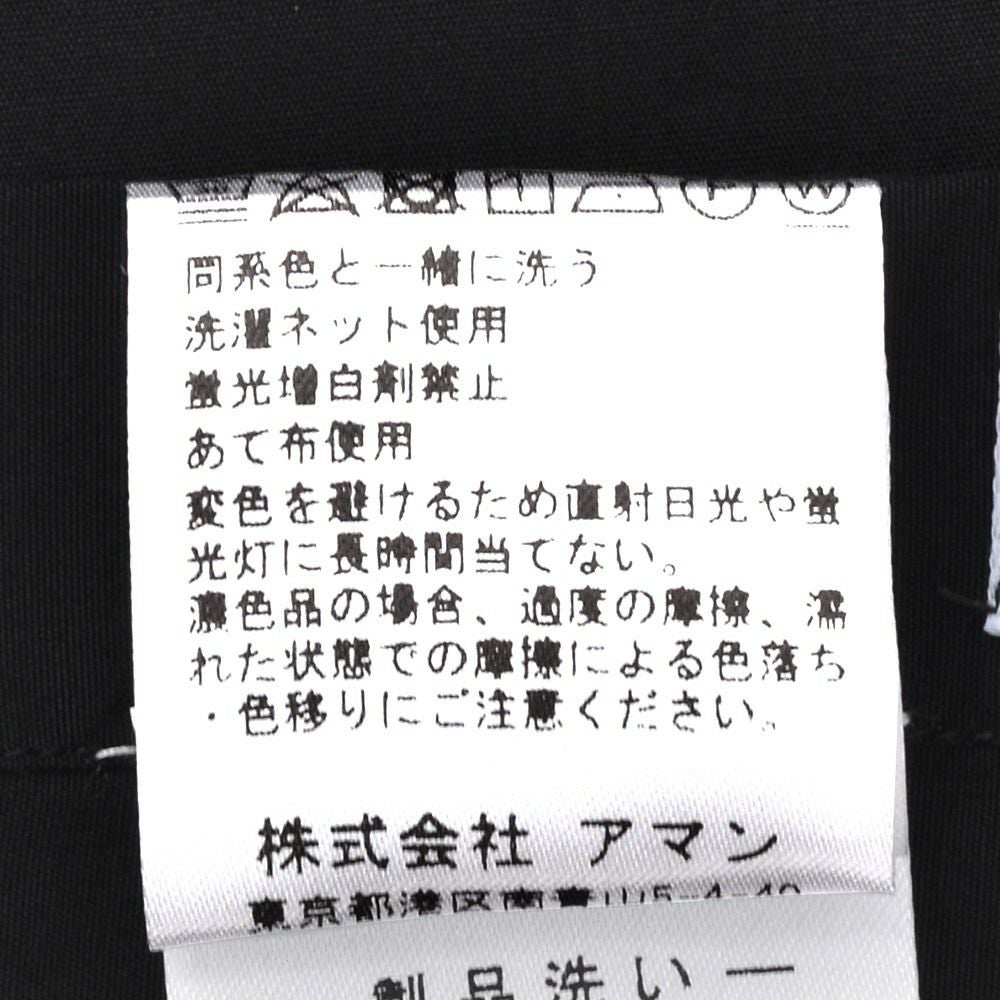 同系色と一緒に洗う
洗濯ネット使用
蛍光増白剤禁止
あて布使用
変色を避けるため直射日光や蛍
光灯に長時間当てない。
濃色品の場合、過度の摩擦、濡
れた状態での摩擦による色落ち
・色移りにご注意ください。
株式会社 アマン
東京都港区南青山5-4-40
製品洗い